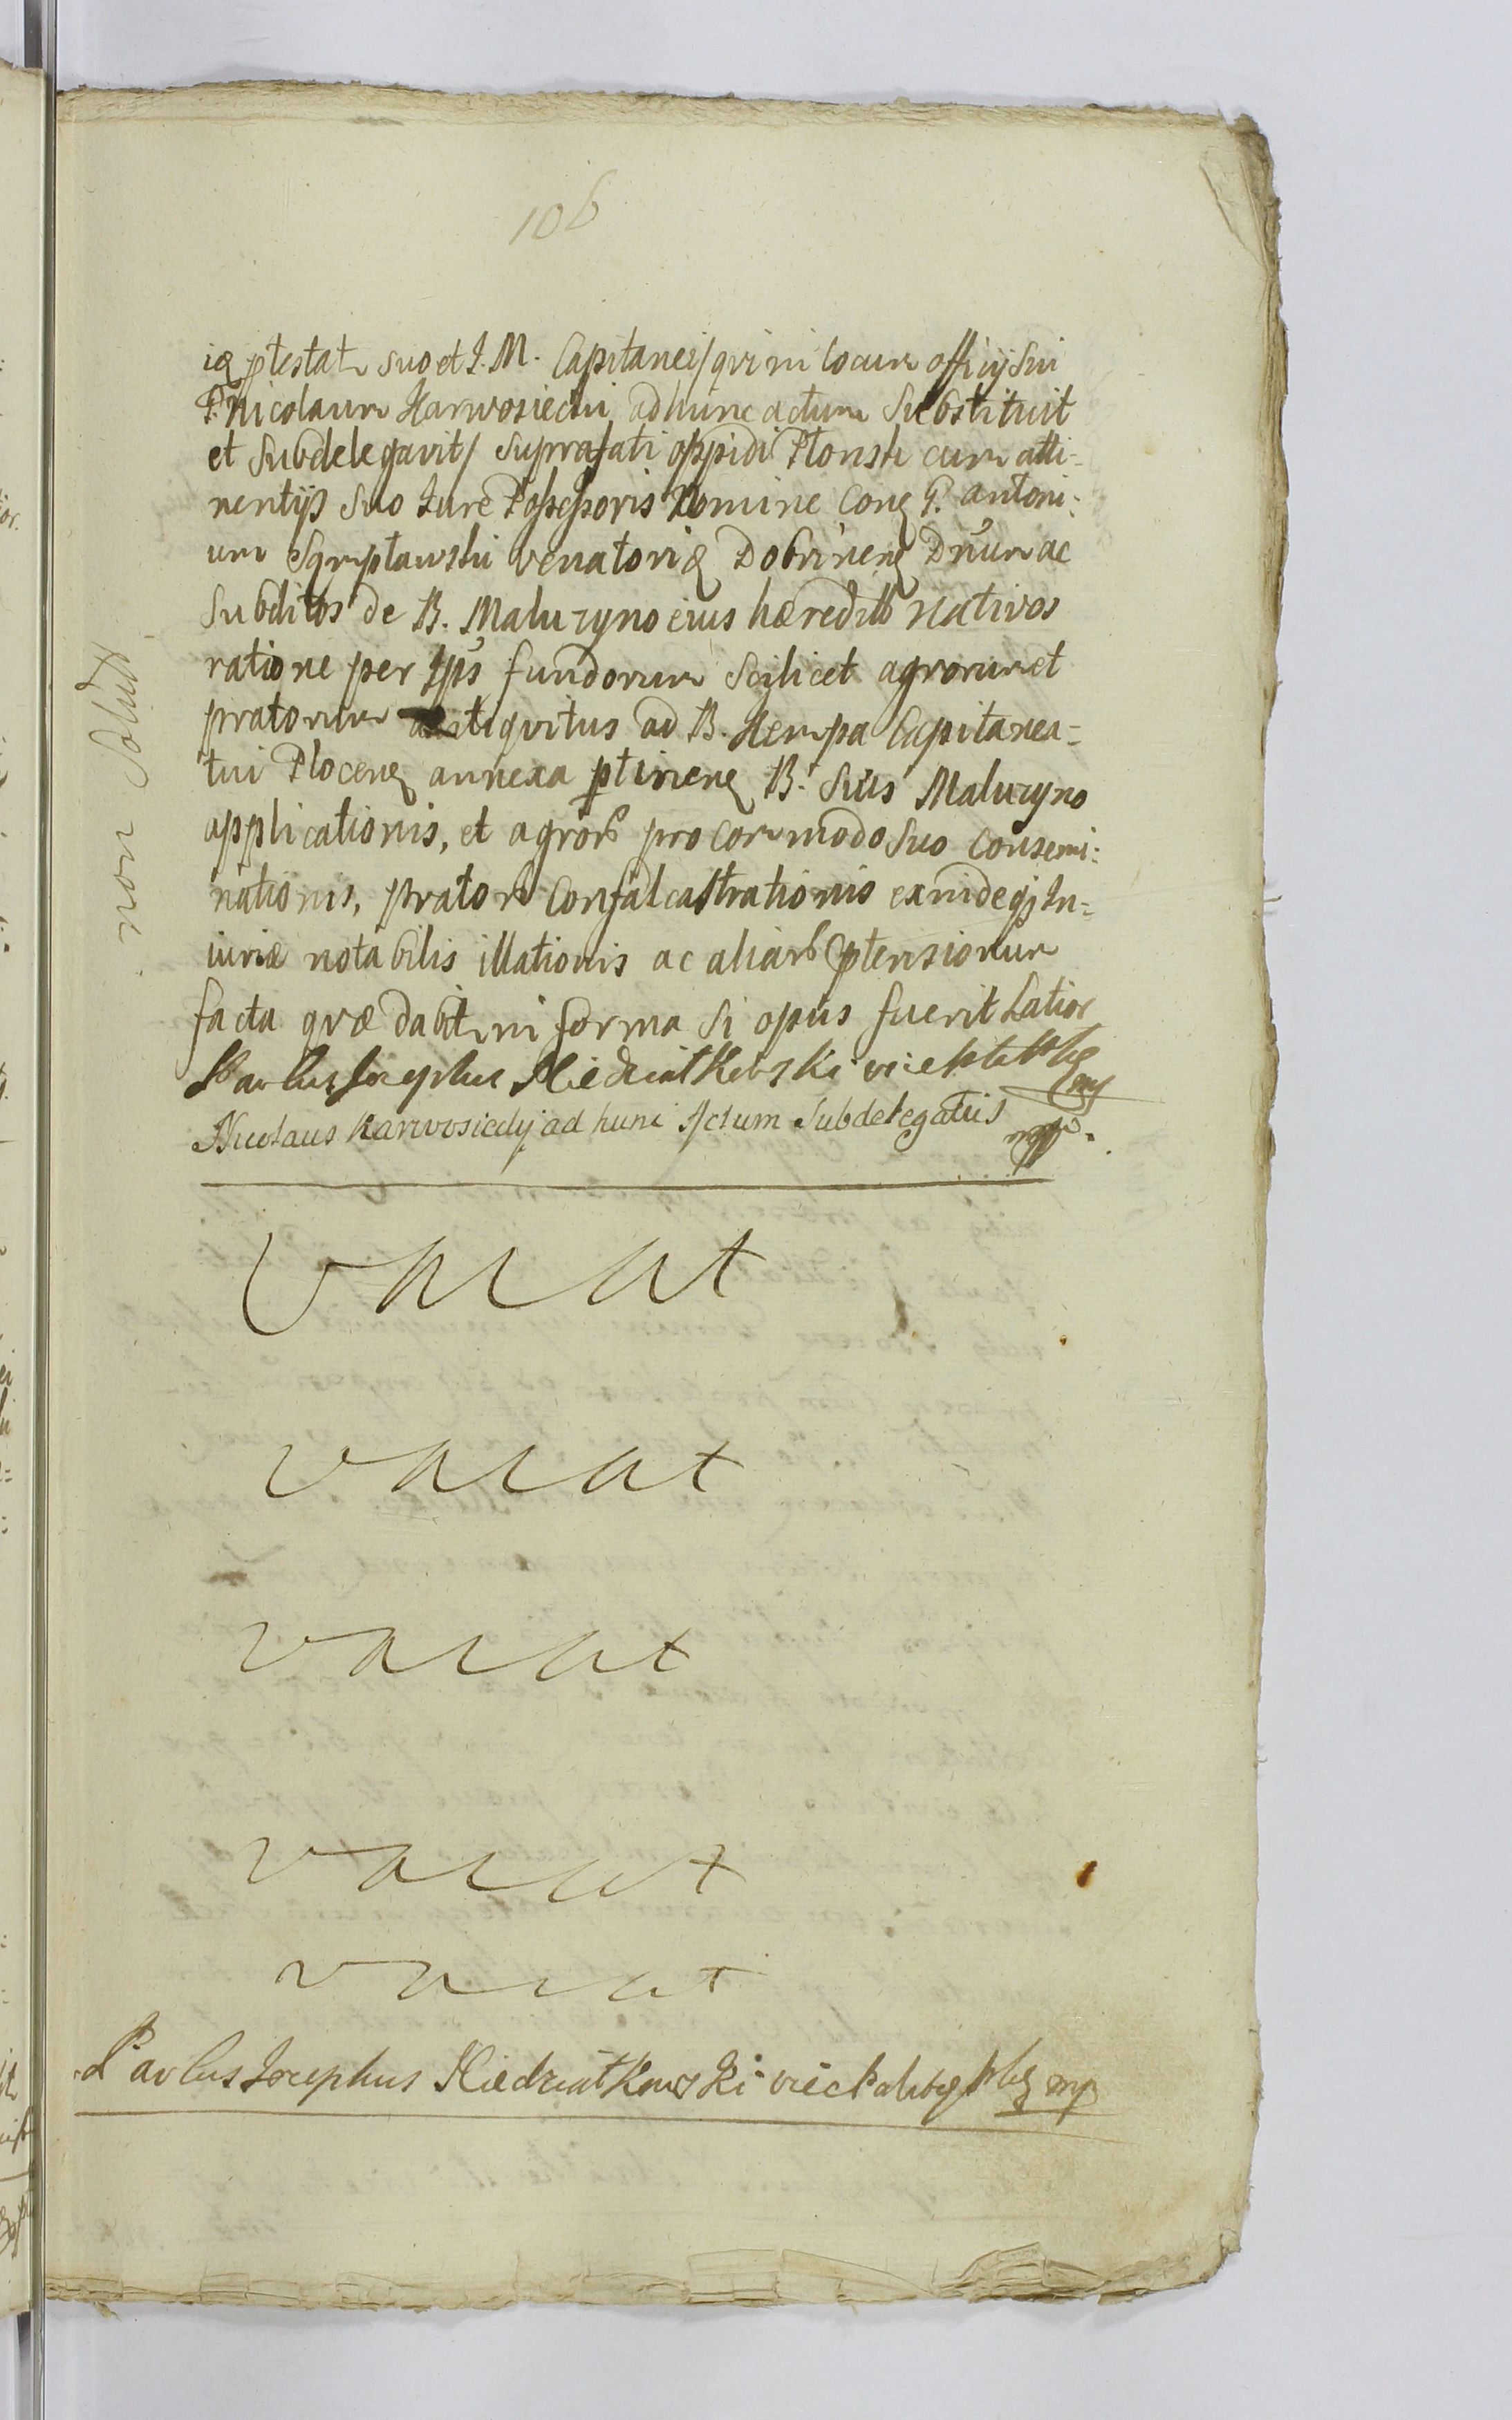 106
iæ ptestatr suo et I. M. Capitanei/ qui in locum officij Sui
P. Nicolaum Karwosiecki ad hunc actum Substituit
et Subdelegavit/ Suprafati oppidi Plonsk cum atti-
nentijs Suo Iure Possessoris Nomine Conq G. Antoni-
um venatoriæ Dobrinenq Dnum ac
Subditos de B. Maluzyno eius hæreditt Nativos
ratione per Ipss fundorum Scilicet agrorum et
pratorum antiquitus ad B. Kempa Capitanea=
tui Plocenq annexa ptinenq B. Suis Maluzyno
applicationis, et agrorb pro commodo Suo Consemi-
nationis, pratorb Confalcastrationis exindeqj In=
iuriæ notabilis illationis ac aliarb ptensionum
facta quæ dabitr in forma Si opus fuerit Latior
Paulus Josephus Niedzialkowski vice
Nicolaus Karwosiecky ad hunc Actum Subdelegatus mpp.
non Solutt
Vacat
vacat
vacat
vacat
vacat
Paulus Josephus Niedzialkowski mp